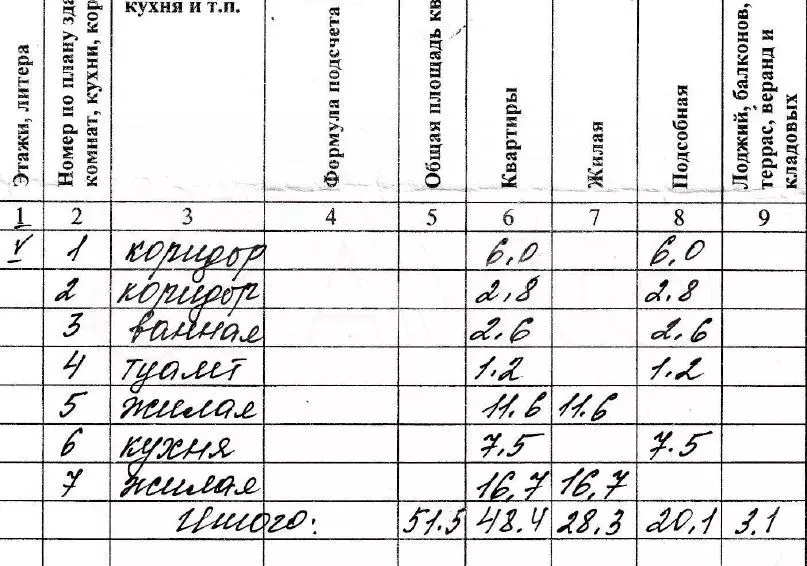 Этажи, литера
Номер по плану зда
комнат, кухни, кор
кухня и т.п.
Формула подсчета
Общая площадь кв
Квартиры
Жилая
Подсобная
Лоджий, балконов,
террас, веранд и
кладовых
1 2 3 4 5 6 7 8 9
V 1 коридор 6,0 6,0
2 коридор 2,8 2.8
3 ванная 2.6 2.6
4 туалет 1.2 1.2
5 жилая 11.6 11.6
6 кухня 7.5 7.5
7 жилая 16,7 16,7
Итого: 51.5 48.4 28.3 20,1 3.1